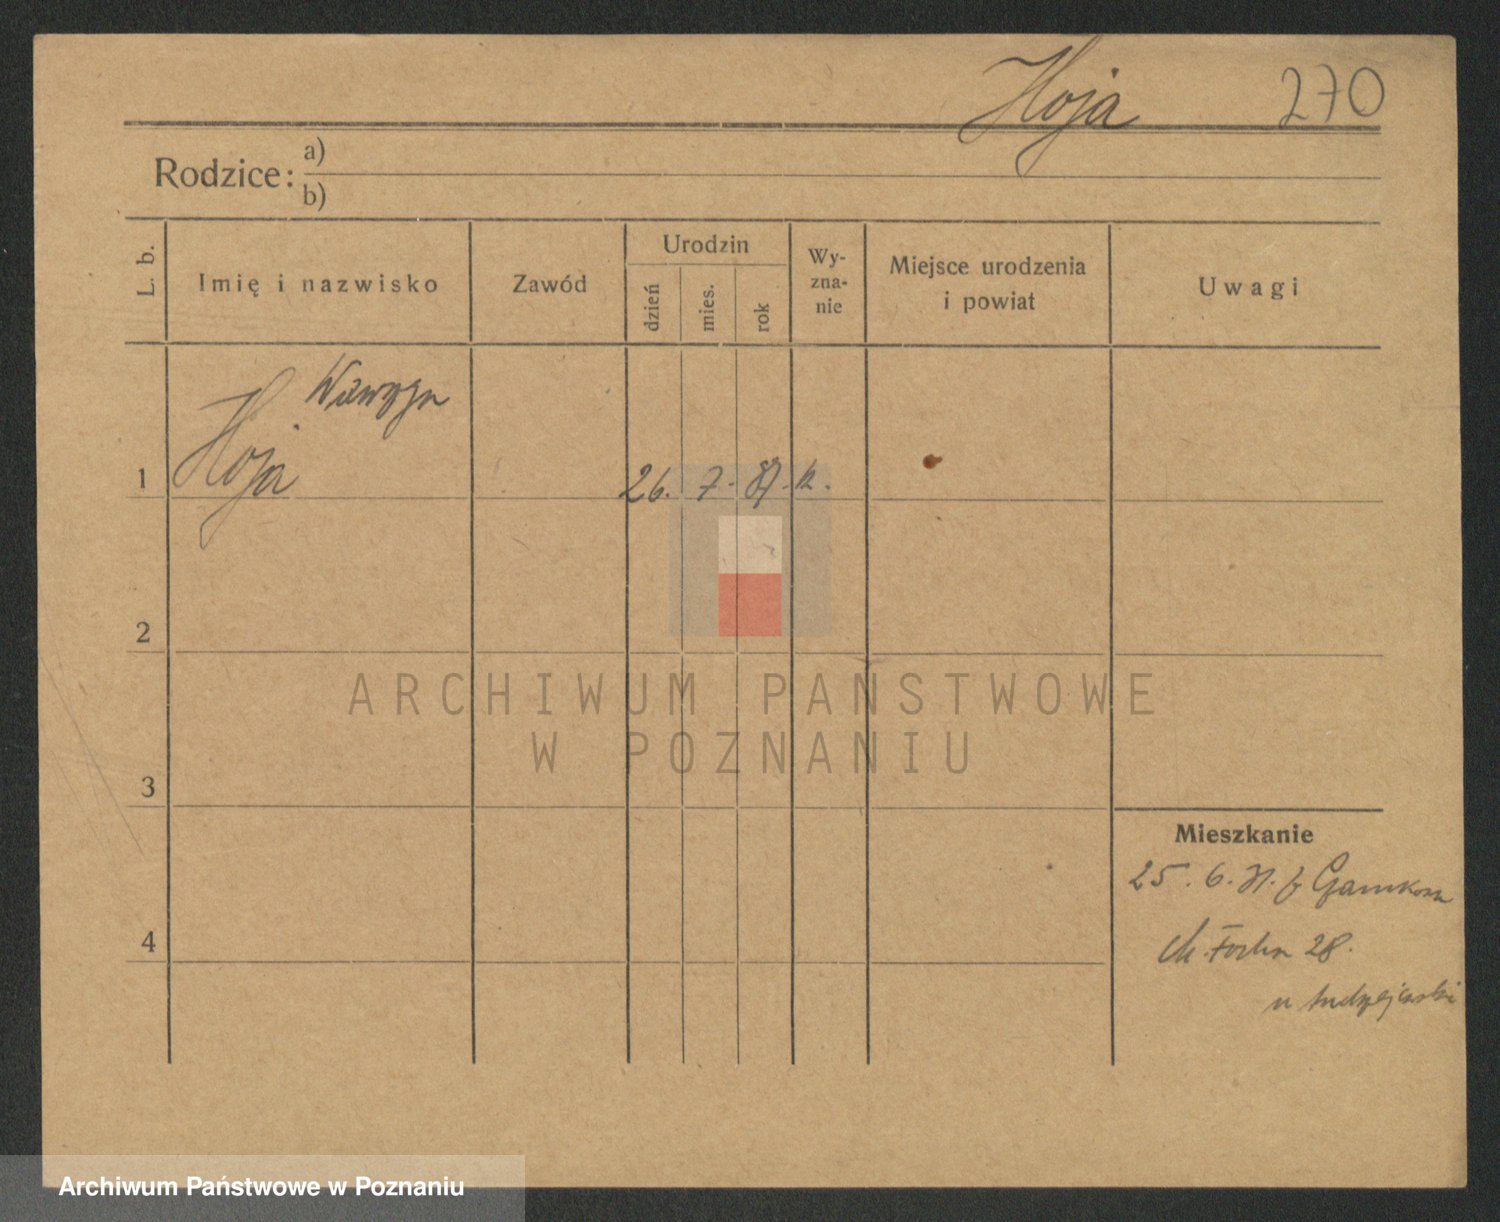 Hoja 270
Rodzice: a)
b)
L. b.
Imię i nazwisko
Zawód
Urodzin
dzień
mies.
rok
Wy-
zna-
nie
Miejsce urodzenia
i powiat
Uwagi
1
Hoja
26. 7. 87.
2
3
4
Mieszkanie
25. 6. 31. z
28.
ARCHIWUM PAŃSTWOWE
W POZNANIU
Archiwum Państwowe w Poznaniu